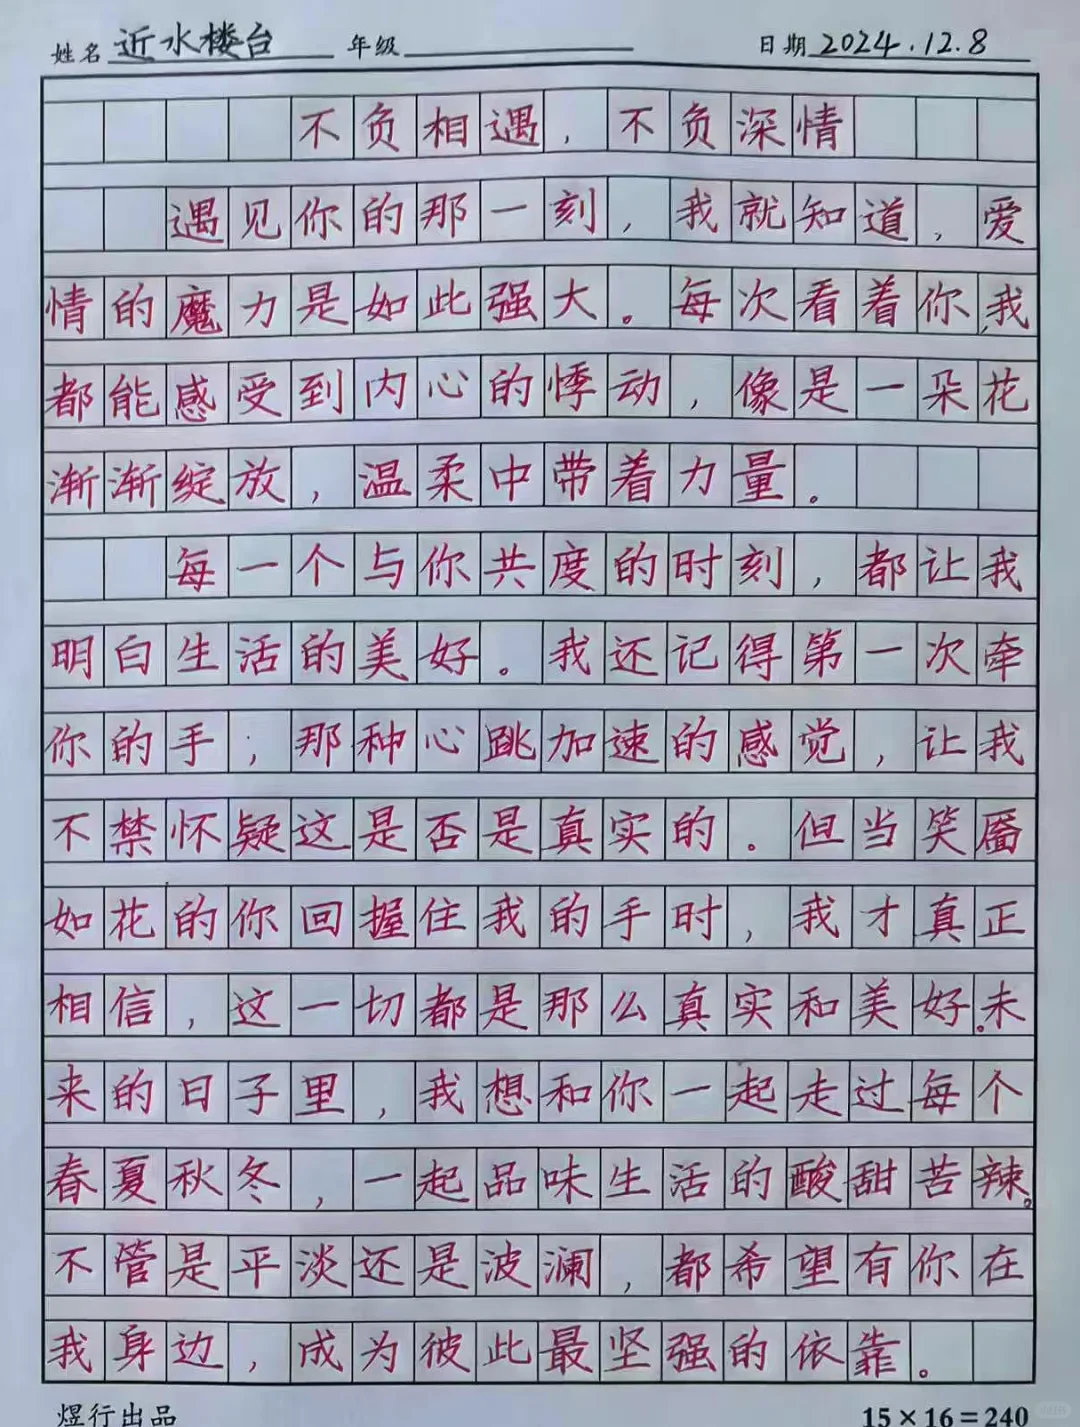 姓名 近水楼台 年级 日期 2024.12.8
不负相遇，不负深情
遇见你的那一刻，我就知道，爱
情的魔力是如此强大。每次看着你,我
都能感受到内心的悸动，像是一朵花
渐渐绽放，温柔中带着力量。
每一个与你共度的时刻，都让我
明白生活的美好。我还记得第一次牵
你的手，那种心跳加速的感觉，让我
不禁怀疑这是否是真实的。但当笑靥
如花的你回握住我的手时，我才真正
相信，这一切都是那么真实和美好。未
来的日子里，我想和你一起走过每个
春夏秋冬，一起品味生活的酸甜苦辣。
不管是平淡还是波澜，都希望有你在
我身边，成为彼此最坚强的依靠。
煜行出品 15×16=240